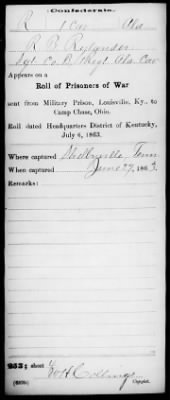 Confederate.
R 1 Cav Ala
R B Rylander
Sgt Co. B 1 Regt. Ala. Cav
Appears on a
Roll of Prisoners of War
sent from Military Prison, Louisville, Ky., to
Camp Chase, Ohio.
Roll dated Headquarters District of Kentucky,
July 6, 1863.
Where captured Shelbyville Tenn
When captured June 27, 1863.
Remarks:
sheet
W H Collins
Copyist.